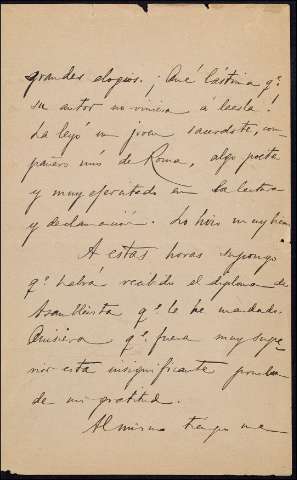 grandes elogios. ¡Qué lástima q.e
su autor no viniera á leerla!
La leyó un joven sacerdote, com-
pañero mío de Roma, algo poeta
y muy ejercitado en la lectura
y declamación. Lo hizo muy bien.
A estas horas supongo
q.e habrá recibido el diploma de
Asambleista q.e le he mandado.
Quisiera q.e fuera muy supe-
rior esta insignificante prueba
de mi gratitud.
Al mismo tiempo me